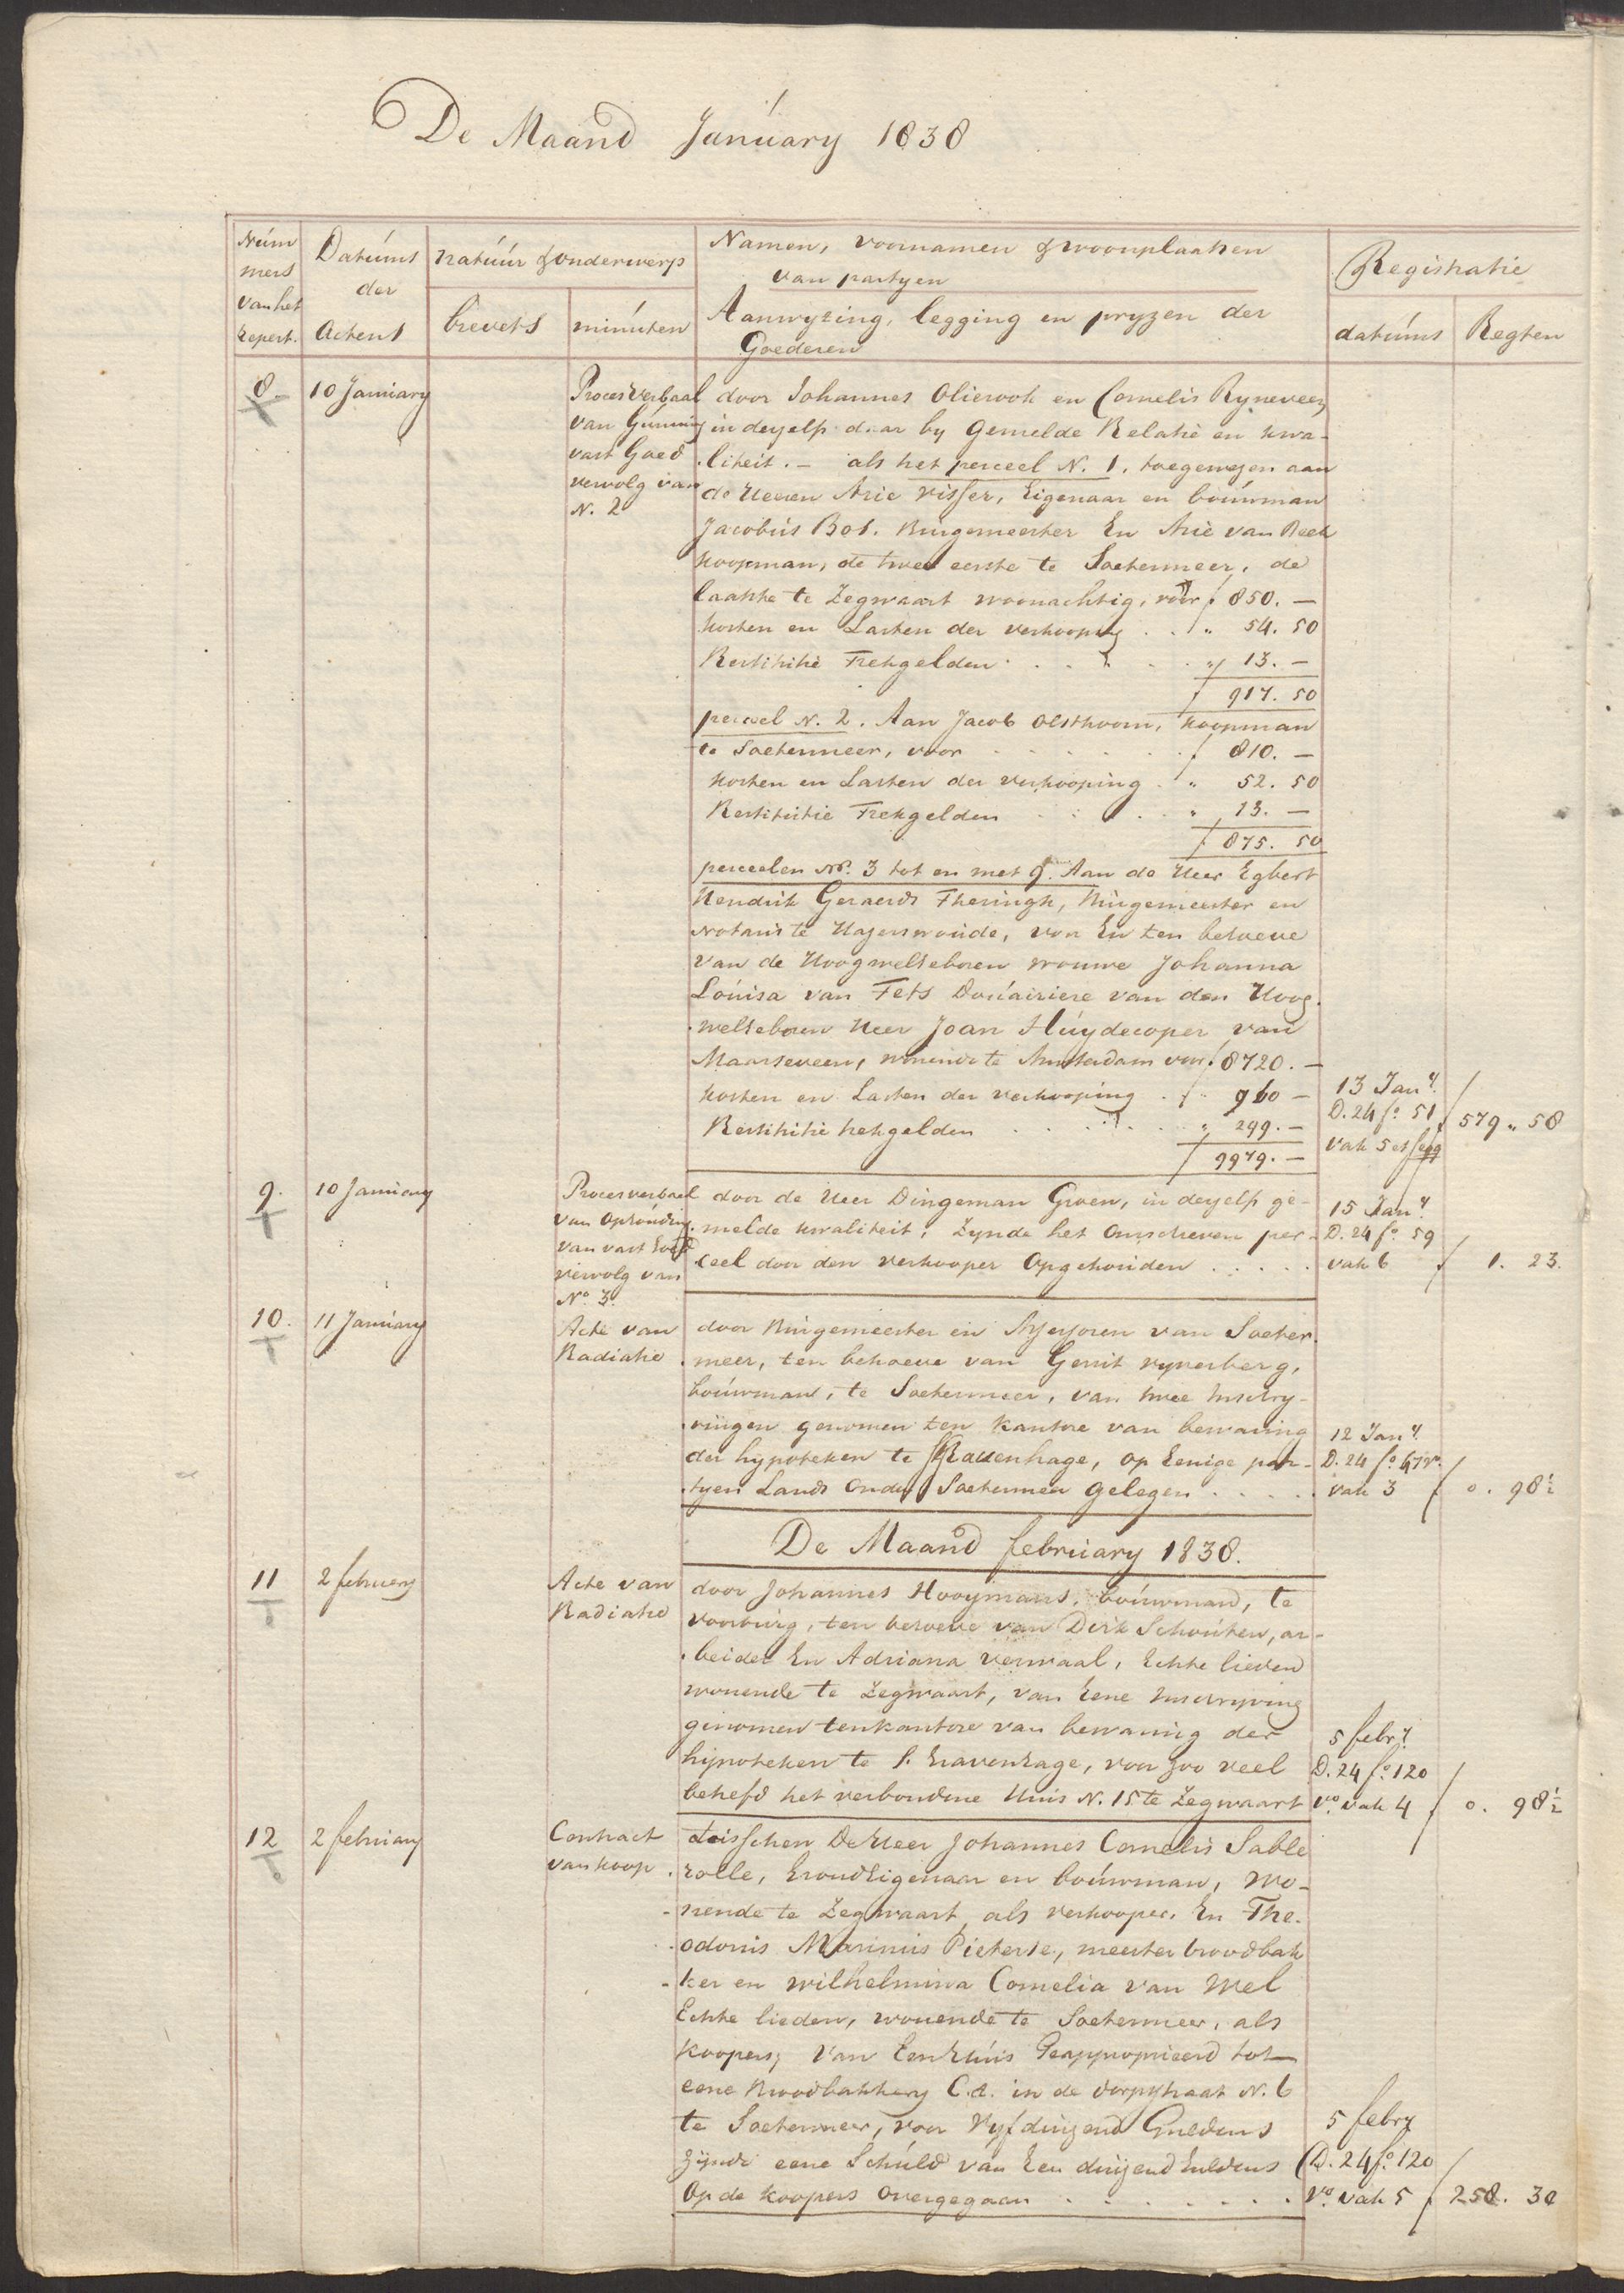 De Maand January 1838
Num
mers
van het
Repert.
Datums
der
Actens
natuur & onderwerp
brevets
minuten
Namen, voornamen & woonplaatsen
van partyen
Aanwyzing, legging en pryzen der
Goederen
Registratie
datums
Regten
8.
10 January
Procesverbaal
van Gunning
vast Goed
vervolg van
N. 2
door Johannes Olierook en Cornelis Ryneveen
in dezelfs daar by gemelde Relatie en kwa-
liteit. - als het perceel N. 1. toegewezen aan
de Heeren Arie Visser, Eigenaar en bouwman
Jacobus Bos. Burgemeester En Arie van Beek
koopman, de twee eerste te Soetermeer, de
laatste te Zegwaart woonachtig, voor f 850. -
kosten en Lasten der verkooping . . " 54. 50
Restitutie Trekgelden . . . . " 13. -
f 917. 50
perceel N. 2. Aan Jacob Olsthoorn, koopman
te Soetermeer, voor . . . . . f 810. -
kosten en Lasten der verkooping . " 52. 50
Restitutie Trekgelden . . . . " 13. -
f 875. 50
perceelen No. 3 tot en met 9. Aan de Heer Egbert
Hendrik Geraerds Theringh, Burgemeester en
Notaris te Hazerswoude, voor En ten behoeve
van de Hoogwelgeboren vrouwe Johanna
Louisa van Fets Douairiere van den Hoog-
welgeboren Heer Joan Huydecoper van
Maarseveen, wonende te Amsterdam voor f 8720. -
kosten en Lasten der verkooping . f " 960 -
Restitutie trekgelden . . . . " 299. -
f 9979. -
13 Jan y.
D. 24 fo. 51
vak 5 et seqq
f 579 " 58
9.
10 January
Procesverbaal
van Ophouding
van vast Goed
vervolg van
No. 3.
door de Heer Dingeman Groen, in dezelfs ge-
melde kwaliteit, Zynde het omschreven per-
ceel door den verkooper Opgehouden . . . . .
15 Jan y.
D. 24 fo. 59
vak 6
f 1. 23.
10.
11 January
Acte van
Radiatie
door Burgemeester en Assessoren van Soeter-
meer, ten behoeve van Gerrit Rynesberg,
bouwman, te Soetermeer, van twee Inschry-
vingen genomen ten kantore van bewaring
der hypoteken te sGravenhage, op Eenige par-
tyen Lands onder Soetermeer gelegen . . . . .
12 Jan y.
D. 24 fo 47 vo.
vak 3
f 0. 98½
De Maand february 1838.
11
2 february
Acte van
Radiatie
door Johannes Hooymans, bouwman, te
Voorburg, ten behoeve van Dirk Schouten, ar-
beider En Adriana Verwaal, Echte lieden
wonende te Zegwaart, van Eene Inschryving
genomen ten kantore van bewaring der
hypoteken te s. Gravenhage, voor zoo veel
betrefd het verbondene Huis N. 15 te Zegwaart
5 febr y.
D. 24 fo. 120
vo. vak 4
f 0. 98½
12
2 february
Contract
van koop.
tusschen De Heer Johannes Cornelis Sable
rolle, Grondeigenaar en bouwman, wo-
nende te Zegwaart, als verkooper. En The-
odorus Marinus Pieterse, meester broodbak
ker en Wilhelmina Cornelia van Wel
Echte lieden, wonende te Soetermeer, als
koopers, van Een huis Geapproprieerd tot
eene Broodbakkery C.A. in de dorpstraat N. 6
te Soetermeer, voor Vyfduizend Guldens
Zynde eene Schuld van Een duizend Guldens
Op de koopers overgegaan . . . . . . .
5 febry
D. 24 fo. 120
vo. vak 5
f 258. 30